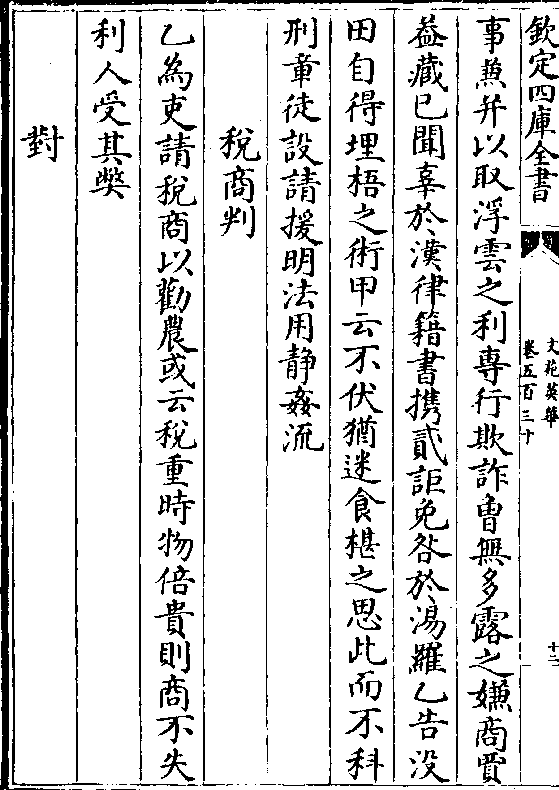 欽定四庫全書
文苑英華
卷五百三十
十二
事兼并以取浮雲之利專行欺詐曾無多露之嫌商賈
葢藏已聞辜於漢律籍書携貳詎免咎於湯羅乙告没
田自得埋梧之術甲云不伏猶迷食椹之思此而不科
刑章徒設請援明法用静姦流
稅商判
乙為吏請稅商以勸農或云稅重時物倍貴則商不失
利人受其獘
對